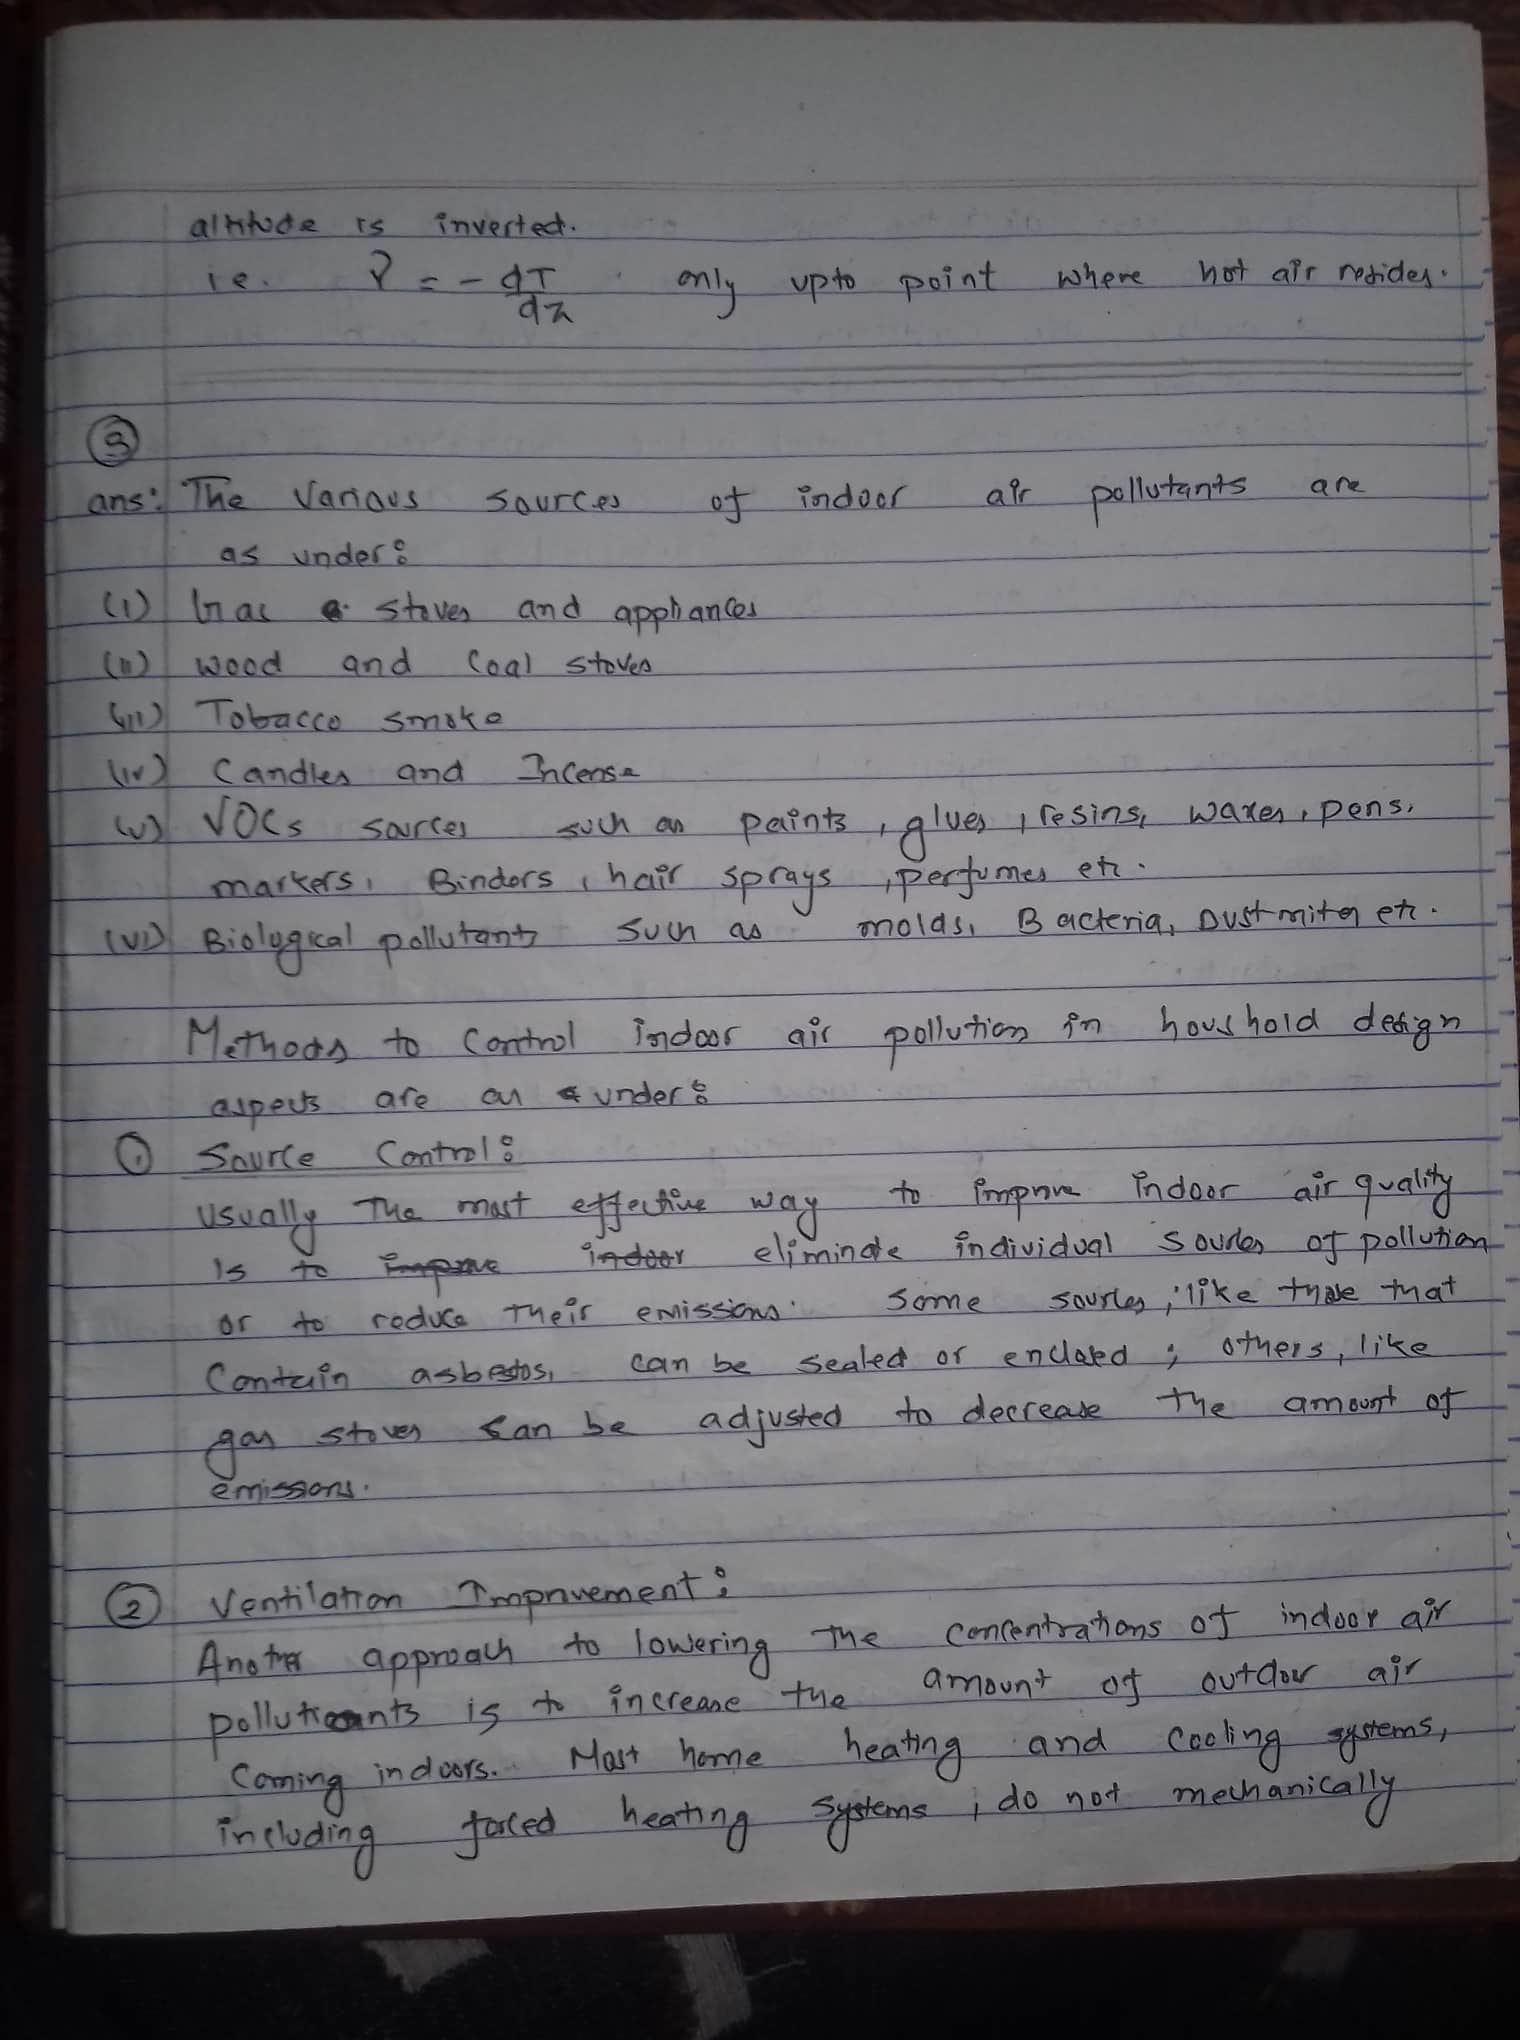 altitude is inverted.
i.e. Γ = - dT/dz only upto point where hot air resides.
③
ans: The Various sources of indoor air pollutants are
as under:
(i) Gas stoves and appliances
(ii) wood and Coal stoves
(iii) Tobacco smoke
(iv) Candles and Incense
(v) VOCs sources such as paints, glues, resins, waxes, pens,
markers, Binders, hair sprays, perfumes etc.
(vi) Biological pollutants such as molds, Bacteria, Dust mites etc.
Methods to Control indoor air pollution in houshold design
aspects are as under:
① Source Control:
Usually The most effective way to improve indoor air quality
is to improve indoor eliminate individual sources of pollution
or to reduce their emissions. Some sources, like those that
Contain asbestos, can be sealed or enclosed; others, like
gas stoves can be adjusted to decrease the amount of
emissions.
② Ventilation Improvement:
Another approach to lowering The concentrations of indoor air
pollutants is to increase the amount of outdoor air
Coming indoors. Most home heating and cooling systems,
including forced heating systems, do not mechanically